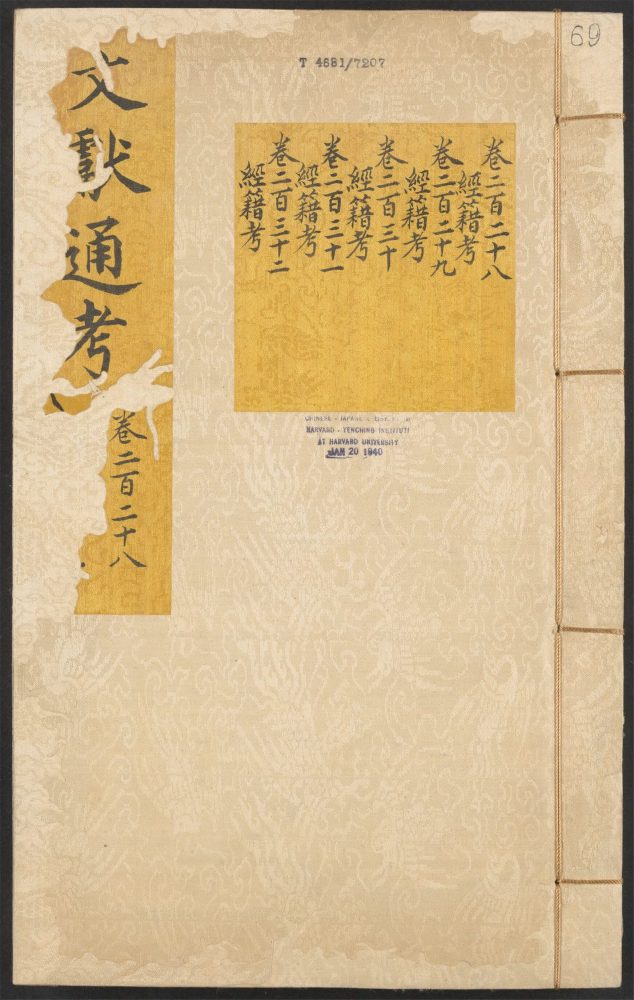 69
T 4681/7207
卷二百二十八
經籍考
卷二百二十九
經籍考
卷二百三十
經籍考
卷二百三十一
經籍考
卷二百三十二
經籍考
文獻通考
卷二百二十八
HARVARD-YENCHING INSTITUTE
AT HARVARD UNIVERSITY
JAN 20 1940